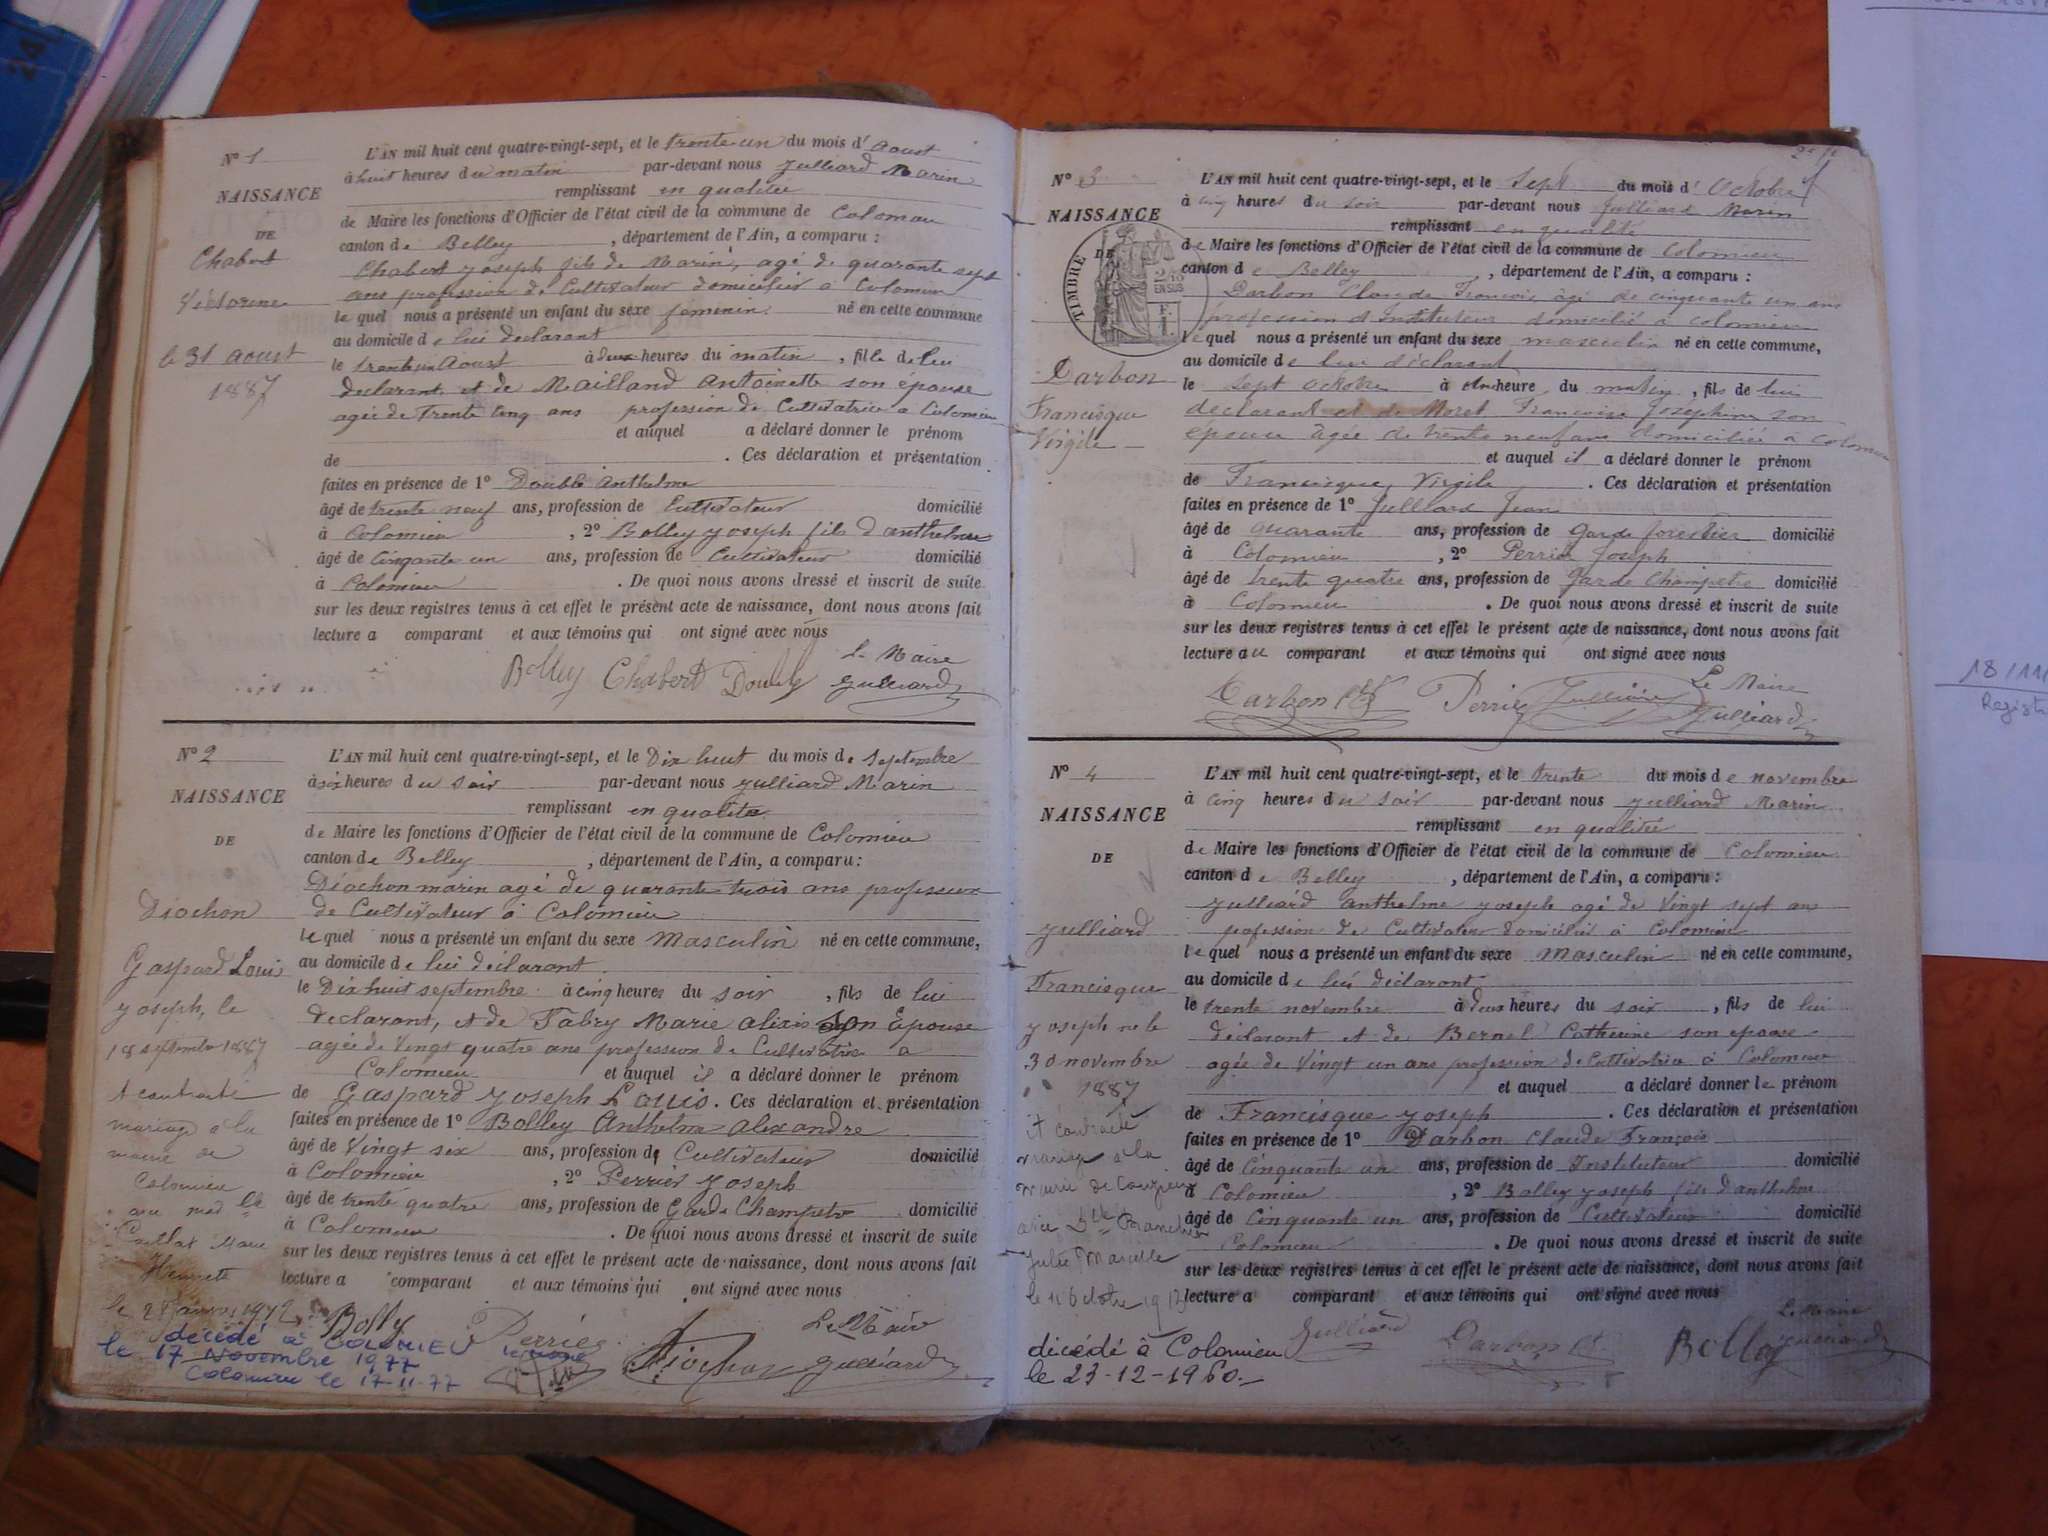 Nº 1
NAISSANCE
DE
Chabert
Victorine
le 31 aoust
1887
L'AN mil huit cent quatre-vingt-sept, et le trente un du mois d' aoust
à huit heures du matin par-devant nous Julliard Marin
remplissant en qualitée
de Maire les fonctions d'Officier de l'état civil de la commune de Colomieu
canton de Belley, département de l'Ain, a comparu :
Chabert Joseph fils de Marin, agé de quarante sept
ans profession de Cultivateur domicilié à Colomieu
le quel nous a présenté un enfant du sexe féminin né en cette commune
au domicile de lui declarant
le trente un Aoust à deux heures du matin, fille de lui
declarant et de Mailland Antoinette son épouse
agée de trente cinq ans profession de Cultivatrice a Colomieu
et auquel a déclaré donner le prénom
de . Ces déclaration et présentation
faites en présence de 1º Double Anthelme
âgé de trente neuf ans, profession de Cultivateur domicilié
à Colomieu, 2º Bolley Joseph fils d'anthelme
âgé de Cinquante un ans, profession de Cultivateur domicilié
à Colomieu . De quoi nous avons dressé et inscrit de suite
sur les deux registres tenus à cet effet le présent acte de naissance, dont nous avons fait
lecture a comparant et aux témoins qui ont signé avec nous
Le Maire
Bolley Chabert Double Julliard
Nº 2
NAISSANCE
DE
Diochon
Gaspard Louis
Joseph, le
18 septembre 1887
A contracté
mariage à la
mairie de
Colomieu
avec Mad lle
Caillat Marie
Henriette
le 28 janvier 1912
décédé à COLOMIEU
le 17 Novembre 1977
Colomieu le 17-11-77
L'AN mil huit cent quatre-vingt-sept, et le Dix huit du mois de septembre
à six heures du soir par-devant nous Julliard Marin
remplissant en qualitée
de Maire les fonctions d'Officier de l'état civil de la commune de Colomieu
canton de Belley, département de l'Ain, a comparu :
Diochon marin agé de quarante trois ans profession
de Cultivateur à Colomieu
le quel nous a présenté un enfant du sexe Masculin né en cette commune,
au domicile de lui declarant
le Dix huit septembre à cinq heures du soir, fils de lui
declarant, et de Fabry Marie Alixis son Epouse
agée de Vingt quatre ans profession de Cultivatrice a
Colomieu et auquel il a déclaré donner le prénom
de Gaspard Joseph Louis. Ces déclaration et présentation
faites en présence de 1º Bolley Anthelme Alexandre
âgé de Vingt six ans, profession de Cultivateur domicilié
à Colomieu, 2º Perrier Joseph
âgé de trente quatre ans, profession de Garde Champetre domicilié
à Colomieu . De quoi nous avons dressé et inscrit de suite
sur les deux registres tenus à cet effet le présent acte de naissance, dont nous avons fait
lecture a comparant et aux témoins qui ont signé avec nous
Le Maire
Bolley Perrier Diochon Julliard
Nº 3
NAISSANCE
DE
TIMBRE
Darbon
Francisque
Virgile
L'AN mil huit cent quatre-vingt-sept, et le Sept du mois d' Octobre
à cinq heures du soir par-devant nous Julliard Marin
remplissant en qualité
de Maire les fonctions d'Officier de l'état civil de la commune de Colomieu
canton de Belley, département de l'Ain, a comparu :
Darbon Claude François âgé de cinquante un ans
profession d'instituteur domicilié à Colomieu
le quel nous a présenté un enfant du sexe masculin né en cette commune,
au domicile de lui déclarant
le sept Octobre à heure du matin, fils de lui
declarant et de Moret Françoise Josephine son
épouse âgée de trente neuf ans domiciliée à Colomieu
et auquel il a déclaré donner le prénom
de Francisque Virgile . Ces déclaration et présentation
faites en présence de 1º Julliard Jean
âgé de quarante ans, profession de Garde forestier domicilié
à Colomieu, 2º Perrier Joseph
âgé de trente quatre ans, profession de Garde Champetre domicilié
à Colomieu . De quoi nous avons dressé et inscrit de suite
sur les deux registres tenus à cet effet le présent acte de naissance, dont nous avons fait
lecture au comparant et aux témoins qui ont signé avec nous
Le Maire
Darbon Perrier Julliard Julliard
Nº 4
NAISSANCE
DE
Julliard
Francisque
Joseph ne le
30 novembre
1887
A contracté
mariage à la
mairie de
avec Dlle
Julie Marcelle
le 11 Octobre
décédé à Colomieu
le 23-12-1960.
L'AN mil huit cent quatre-vingt-sept, et le trente du mois de novembre
à cinq heures du soir par-devant nous Julliard Marin
remplissant en qualitée
de Maire les fonctions d'Officier de l'état civil de la commune de Colomieu
canton de Belley, département de l'Ain, a comparu :
Julliard Anthelme Joseph agé de Vingt sept ans
profession de Cultivateur domicilié à Colomieu
le quel nous a présenté un enfant du sexe Masculin né en cette commune,
au domicile de lui déclarant
le trente novembre à deux heures du soir, fils de lui
déclarant et de Bernel Catherine son epouse
agée de Vingt un ans profession de Cultivatrice à Colomieu
et auquel a déclaré donner le prénom
de Francisque Joseph . Ces déclaration et présentation
faites en présence de 1º Darbon Claude François
âgé de Cinquante un ans, profession de Instituteur domicilié
à Colomieu, 2º Bolley Joseph fils d'anthelme
âgé de Cinquante un ans, profession de Cultivateur domicilié
Colomieu . De quoi nous avons dressé et inscrit de suite
sur les deux registres tenus à cet effet le présent acte de naissance, dont nous avons fait
lecture a comparant et aux témoins qui ont signé avec nous
Le Maire
Julliard Darbon Bolley Julliard